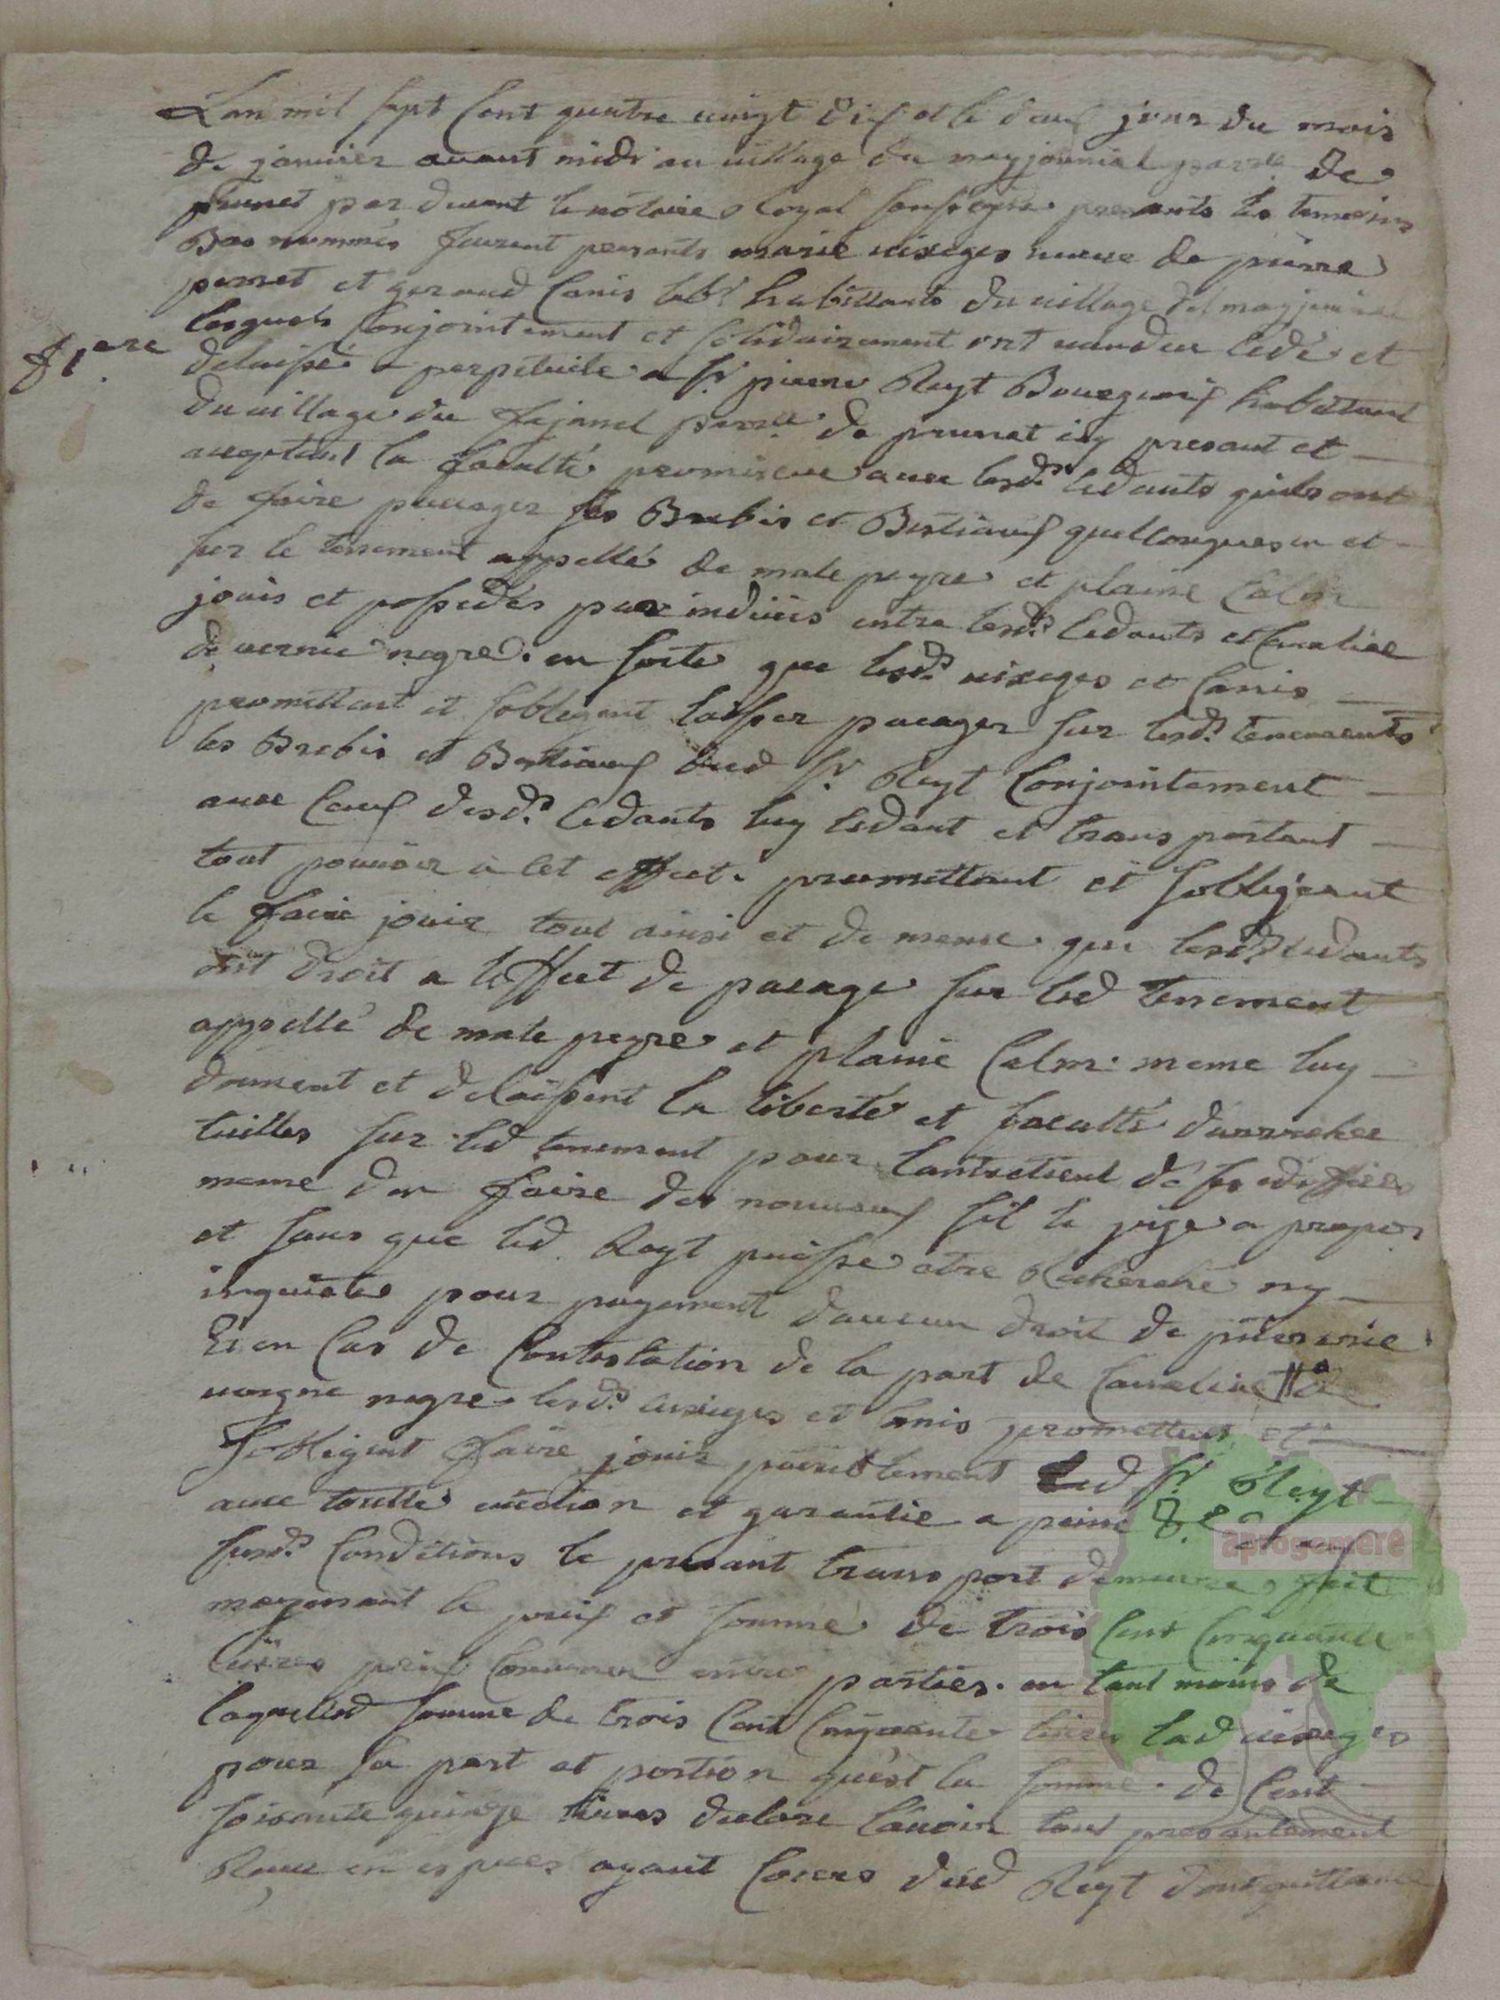 Lan mil sept cent quatre vingt dix et le deux jour du mois
de janvier avant midi au village du mayjounial parr.sse de
prunet par devant le notaire Royal soussigné presants les temoins
Bas nommés furent presants marie vixeges veuve de pierre
perret et geraud Canis labr habittants du village del mayjounial
lesquels Conjointement et solidairement ont vandeu cedé et
f 1ere
delaissé a perpetuité a sr pierre Reyt Bourgeois habitant
du village du fajanel parr.sse de prunet icy presant et
aceptant la faculté promiscue avec lesds cedants quils ont
de faire pacager ses Brebis et Bestiaux quelconques en et
sur le tenement appellé de mate peyre et plaine Calm
jouis et possedés par indivis entre lesds cedants et Cavaliae
de vernie negre. en sorte que lesds vixeges et Canis
promettent et soblegent laisser pacager sur lesds tenements
les Brebis et Bestiaux dud sr Reyt Conjointement
avec Ceux desds cedants luy cedant et transportant
tout pouvoir a cet effect. promettant et soblégeant
le faire jouir tout ainsi et de meme que lesds cedants
ont droit a leffect de pacage sur led tenement
appellé de mate peyre et plaine Calm. meme luy
donnent et delaissent la liberté et faculté darracher
tuilles sur led tenement pour lantretient de ses ediffices
meme den faire des nouveaux sil le juge a propos
et sans que led Reyt puisse etre Recherché ny
inquieté pour payement daucun droit de
Et en Cas de Contestation de la part de
negre lesds vixeges et Canis promettent et
soblegent faire jouir paisiblement led sr Reyt
avec toutte eviction et garantie a peine &.
susds Conditions le presant transport demeure fait
moyenant le prix et somme de trois Cent Cinquante
livres prix Convenu entre parties. en tant moins de
laquelled somme de trois Cent Cinquante livres lad vixeges
pour sa part et portion quest la somme de Cent
soixante quinze livres declare lavoir tout presantement
Reçue en espces ayant Cours dud Reyt dont quittance
aprogemere